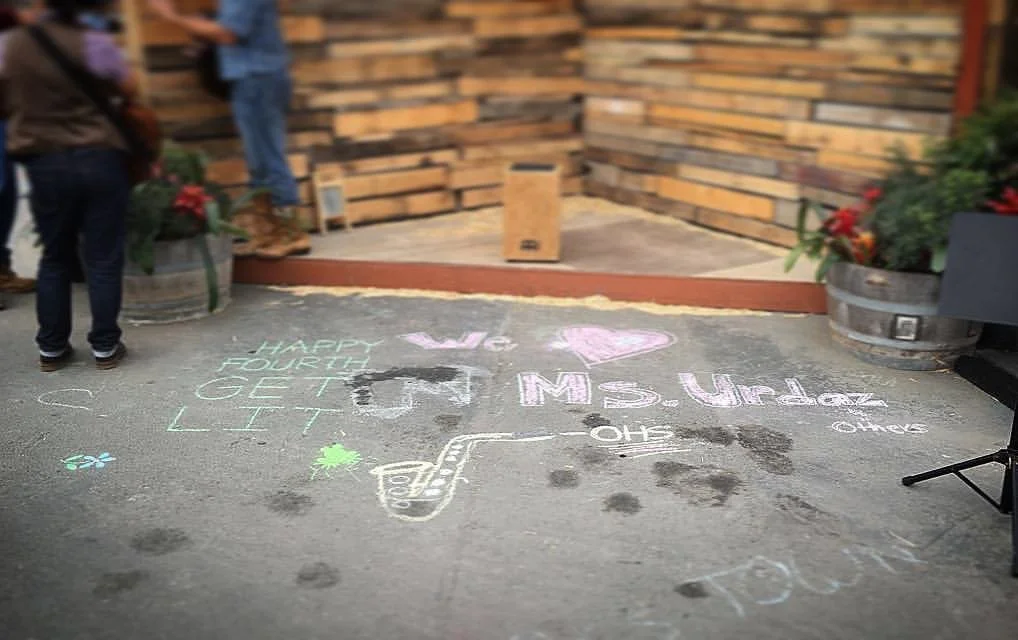 HAPPY
FOURTH
GET
LIT
We
Ms. Urdaz
Others
OHS
TOWN